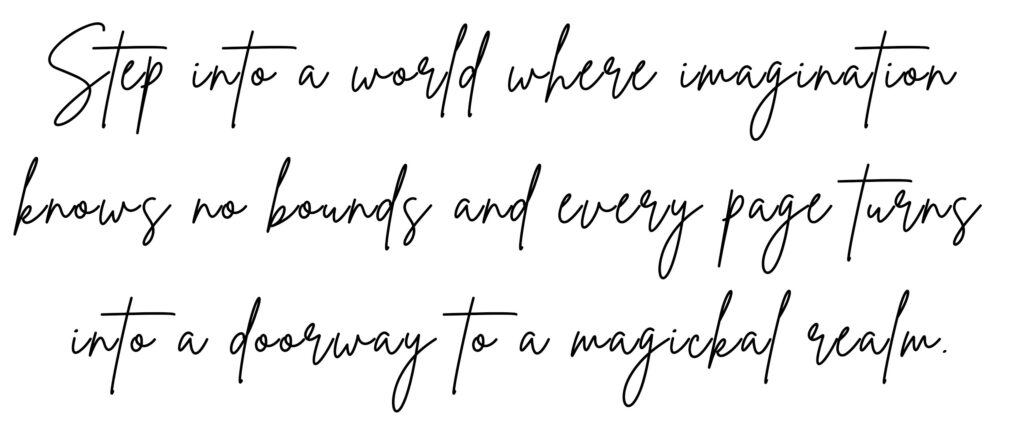 Step into a world where imagination
knows no bounds and every page turns
into a doorway to a magickal realm.